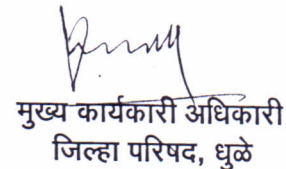 मुख्य कार्यकारी अधिकारी
जिल्हा परिषद, धुळे